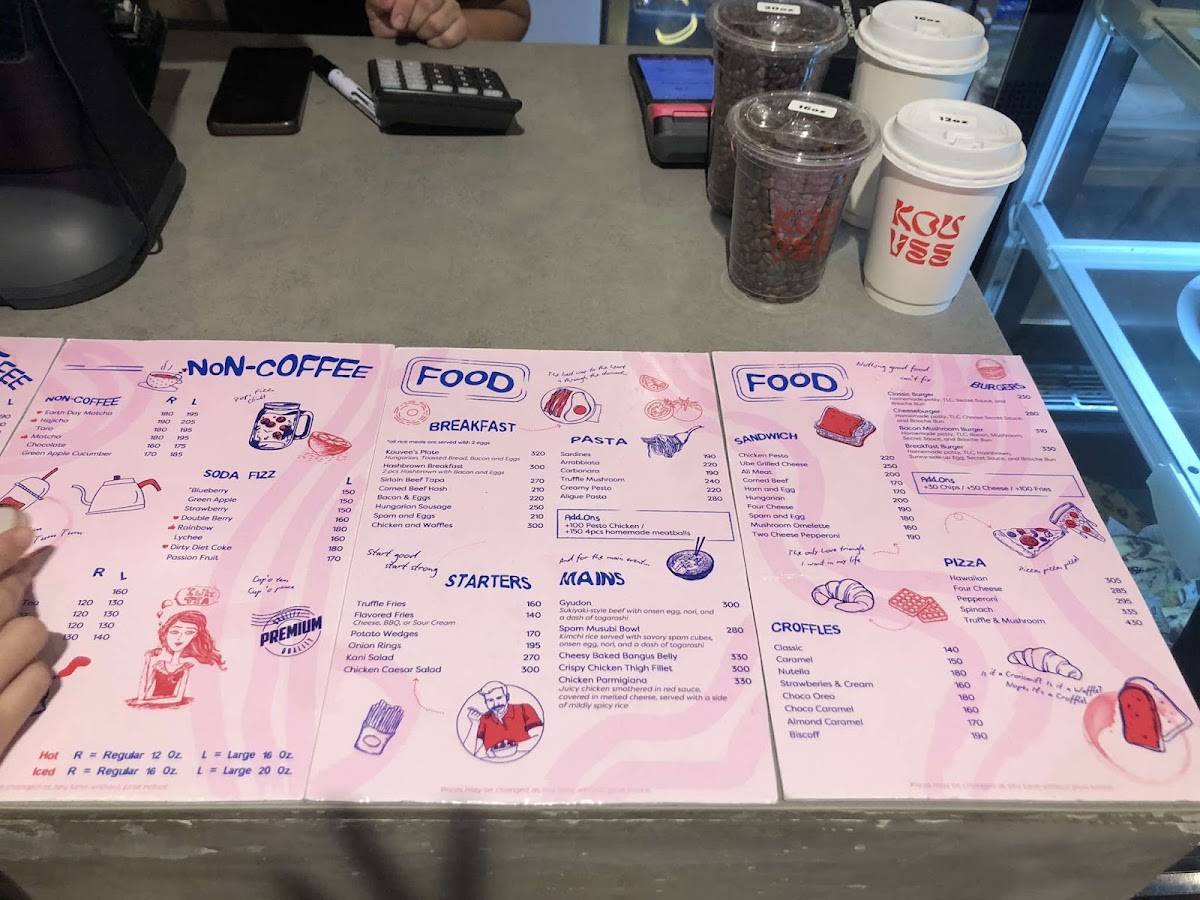 20oz
16oz
16oz
12oz
KOU
VEE
KOU
VEE
L
NON-COFFEE
NON-COFFEE R L
Earth Day Matcha 180 195
Hojicha 190 205
Taro 180 195
Matcha 180 195
Chocolate 160 175
Green Apple Cucumber 170 185
SODA FIZZ L
*Blueberry 150
Green Apple 150
Strawberry 150
Double Berry 160
Rainbow 180
Lychee 160
Dirty Diet Coke 180
Passion Fruit 170
R L
160
120 130
120 130
120 130
130 140
PREMIUM
QUALITY
Hot R = Regular 12 Oz. L = Large 16 Oz.
Iced R = Regular 16 Oz. L = Large 20 Oz.
FOOD
The last way to the heart
is through the stomach
BREAKFAST
*all rice meals are served with 2 eggs
Kouvee's Plate 320
Hungarian, Toasted Bread, Bacon and Eggs
Hashbrown Breakfast 300
2 pcs Hashbrown with Bacon and Eggs
Sirloin Beef Tapa 270
Corned Beef Hash 210
Bacon & Eggs 220
Hungarian Sausage 250
Spam and Eggs 210
Chicken and Waffles 300
PASTA
Sardines 190
Arrabbiata 220
Carbonara 190
Truffle Mushroom 240
Creamy Pesto 220
Aligue Pasta 280
Add.Ons
+100 Pesto Chicken /
+150 4pcs homemade meatballs
Start good
start strong
STARTERS
Truffle Fries 160
Flavored Fries 140
Cheese, BBQ, or Sour Cream
Potato Wedges 170
Onion Rings 195
Kani Salad 270
Chicken Caesar Salad 300
And for the main event...
MAINS
Gyudon 300
Sukiyaki-style beef with onsen egg, nori, and
a dash of togarashi
Spam Musubi Bowl 280
Kimchi rice served with savory spam cubes,
onsen egg, nori, and a dash of togarashi
Cheesy Baked Bangus Belly 330
Crispy Chicken Thigh Fillet 300
Chicken Parmigiana 330
Juicy chicken smothered in red sauce,
covered in melted cheese, served with a side
of mildly spicy rice
Prices may be changed at any time without prior notice
FOOD
Nothing good food
can't fix
SANDWICH
Chicken Pesto 220
Ube Grilled Cheese 250
All Meat 200
Corned Beef 170
Ham and Egg 170
Hungarian 200
Four Cheese 190
Spam and Egg 180
Mushroom Omelette 160
Two Cheese Pepperoni 190
BURGERS
Classic Burger 230
Homemade patty, TLC, Secret Sauce, and
Brioche Bun
Cheeseburger 280
Homemade patty, TLC Cheese Secret Sauce,
and Brioche Bun
Bacon Mushroom Burger 310
Homemade patty, TLC Bacon, Mushroom,
Secret Sauce, and Brioche Bun
Breakfast Burger 330
Homemade patty, TLC Hashbrown,
Sunny-side up Egg, Secret Sauce, and Brioche Bun
Add.Ons
+30 Chips / +50 Cheese / +100 Fries
The only love triangle
I want in my life
Pizza, pizza, pizza!
PIZZA
Hawaiian 305
Four Cheese 285
Pepperoni 295
Spinach 335
Truffle & Mushroom 430
CROFFLES
Classic 140
Caramel 150
Nutella 180
Strawberries & Cream 160
Choco Oreo 180
Choco Caramel 160
Almond Caramel 170
Biscoff 190
Is it a Croissant? Is it a Waffle?
Nope, it's a Croffle!